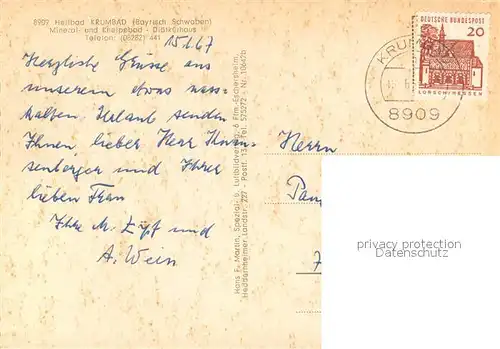 8909 Heilbad KRUMBAD (Bayrisch Schwaben)
Mineral- und Kneippbad - Diätkurhaus
Telefon: (08282) 441
15.1.67
Herzliche Grüsse aus
unserem etwas
kalten Urlaub senden
Ihnen, lieber Herr
senberger und Ihrer
lieben Frau
Ihre M. Zipf und
A. Wein
Hans F. Martin, Spezial- u. Luftbildverlag, 6 Ffm.-Eschersheim,
Heddernheimer Landstr. 227 - Postf. 13 - Tel. 575272 - Nr. 10640
Herrn
DEUTSCHE BUNDESPOST
20
LORSCH/HESSEN
8909
privacy protection
Datenschutz